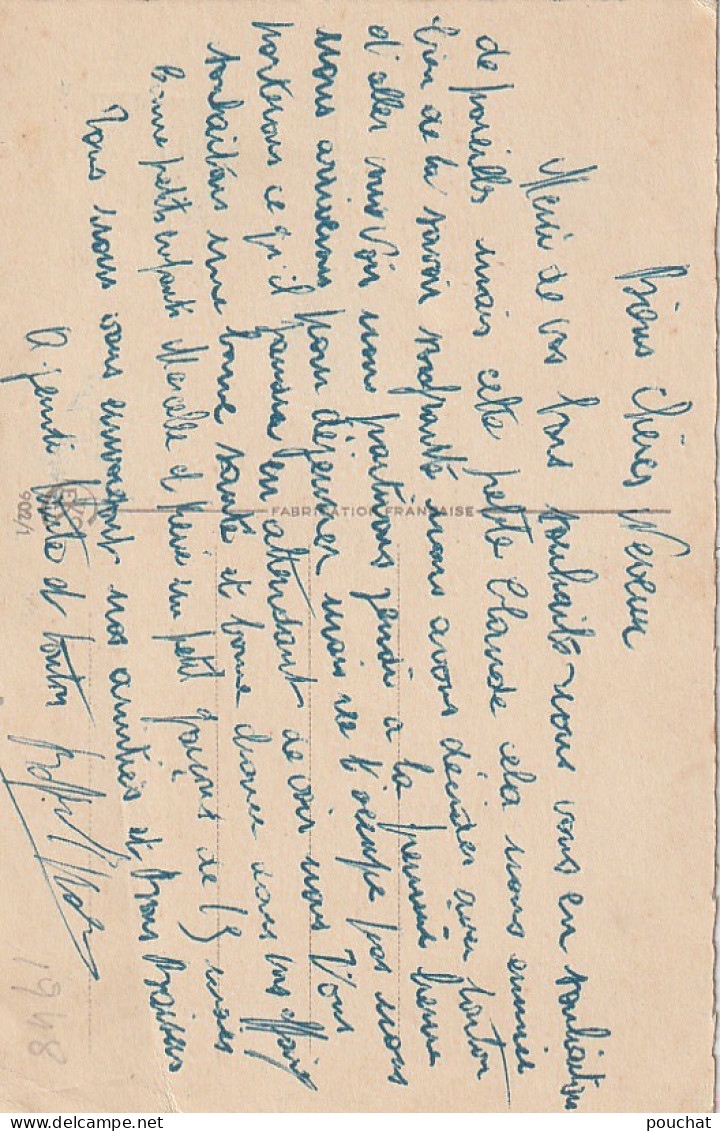 Biens chères Neveux
Merci de vos bons souhaits nous vous en souhaitons
de pareills mais cette petite Claude cela nous ennuie
bien de la savoir souffrante nous avons décider avec tonton
d'aller vous voir nous partirons jeudi a la premiere heure
nous arriverons pour déjeuner mais ne t'occupe pas nous
porterons ce qu'il faudra en attendant de vois nous Vous
souhaitons une bonne santé et bonne chance dans vos affaires
bonne petits enfants Marcelle et René un petit garçons de 15 mois
Tous nous vous envoyont nos amitiés et Bons Baisers
A jeudi tata et tonton
FABRICATION FRANÇAISE
902/1
1948
pouchat